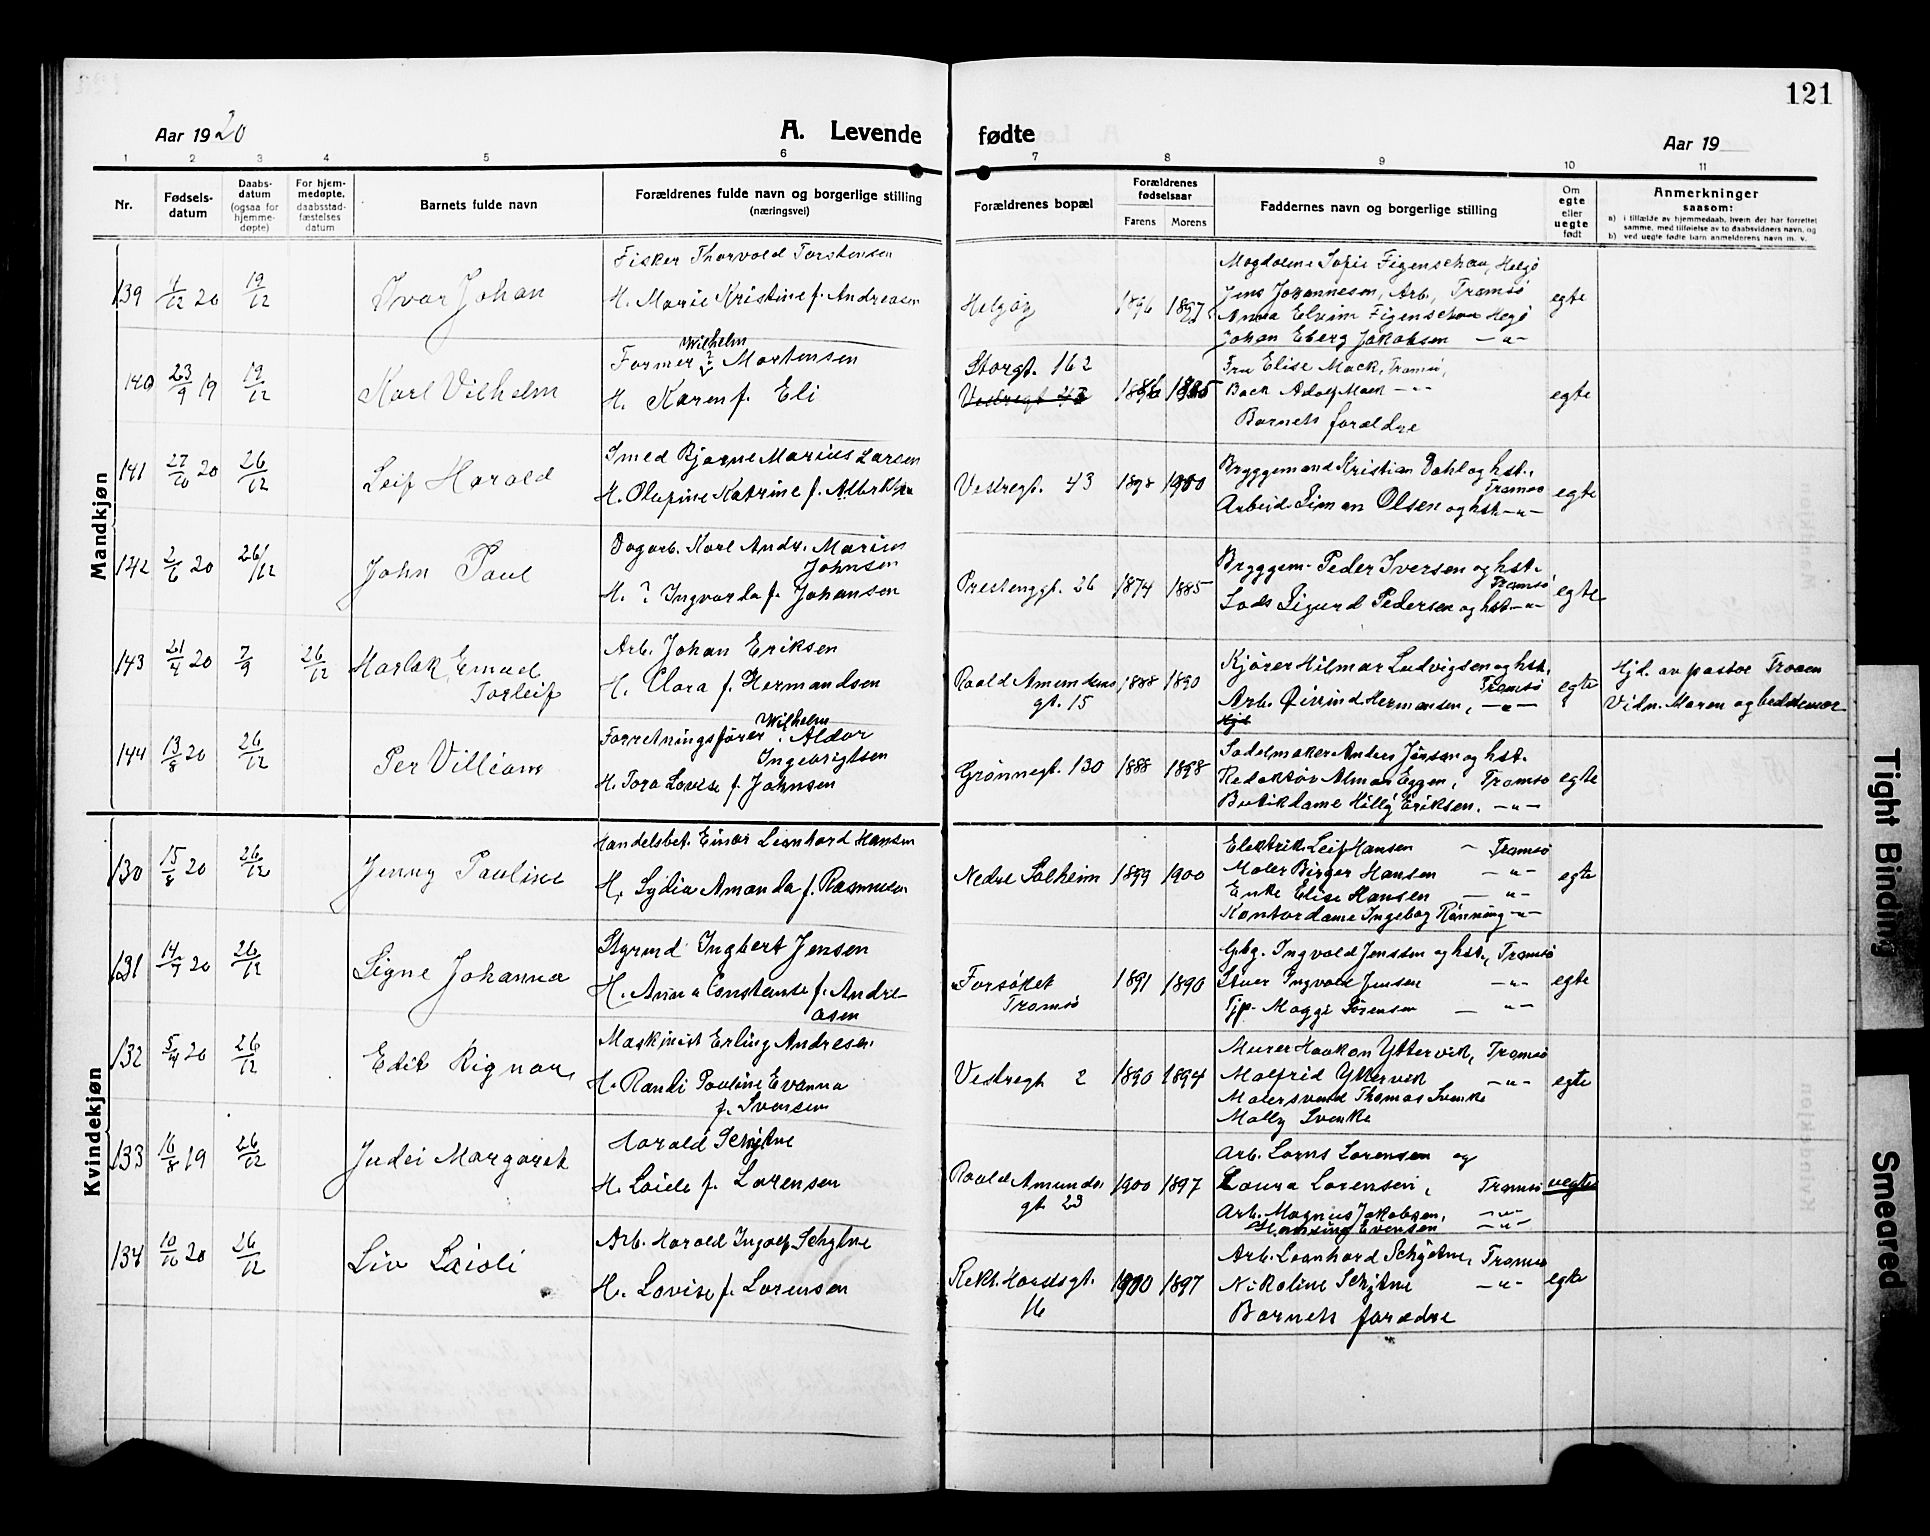 121
Aar 1920
A. Levende fødte
Aar 19
1 2 3 4 5 6 7 8 9 10 11
Nr.
Fødsels-
datum
Daabs-
datum
(ogsaa for
hjemme-
døpte)
For hjem-
medøpte,
daabsstad-
fæstelses
datum
Barnets fulde navn
Forældrenes fulde navn og borgerlige stilling
(næringsvei)
Forældrenes bopæl
Forældrenes
fødselsaar
Farens Morens
Faddernes navn og borgerlige stilling
Om
egte
eller
uegte
født
Anmerkninger
saasom:
a) i tilfælde av hjemmedaab, hvem der har forrettet
samme, med tilføielse av to daabsvidners navn, og
b) ved uegte fødte barn anmelderens navn m. v.
Mandkjøn
139 4/12 20 19/12 Ivar Johan
Fisker Thorvald Torstensen
H. Marie Kristine f. Andreasen
Helgøy 1896 1897
Magdalene Sofie Figenschau, Helgø
Jens Johannesen, Arb., Tromsø
Anna Elvine Figenschau Helgø
Johan Eberg Jakobsen -"-
egte
140 23/9 19 19/12 Karl Vilhelm
Wilhelm
Former ? Mortensen
H. Karen f. Eli
Storgt. 162
Vestregt 43
1886 1885
Fru Elise Mack, Tromsø,
Back Adolf Mack -"-
Barnets forældre
egte
141 27/10 20 26/12 Leif Harald
Smed Bjarne Marius Larsen
H. Olufine Katrine f. Albrikten
Vestregt. 43 1898 1900
Bryggemand Kristian Dahl og hst.,
Tromsø
Arbeid. Siman Olsen og hst -"-
egte
142 2/6 20 26/12 John Paul
Dagarb. Karl Andr. Marius
Johnsen
H. ? Ingvarda f. Johansen
Prestenggt. 26 1874 1885
Bryggem. Peder Iversen og hst.
Tromsø
Lods Sigurd Pedersen og hst -"-
egte
143 21/4 20 7/9 26/12
Torleif
Arb. Johan Eriksen
H. Clara f. Hermandsen
Roald Amundsens
gt. 15
1888 1890
Kjører Hilmar Ludvigsen og hst.
Tromsø
Arb. Øivind Hermansen, -"-
egte
Hjd. av pastor Traaen
Vidn. Maren og beddemor
144 13/8 20 26/12 Per Villiam
Wilhelm
Forretningsfører ? Aldor
Ingebrigtsen
H. Tora Lovise f. Johnsen
Grønnegt. 130 1888 1898
Sadelmaker Anders Jensen og hst.
Redaktør Alman Eggen, Tromsø
Butikdame Hilly Eriksen. -"-
egte
Kvindekjøn
130 15/8 20 26/12 Jenny Pauline
Handelsbet. Einar Leonhard Hansen
H. Lydia Amanda f. Rasmussen
Nedre Solheim 1899 1900
Elektrik. Leif Hansen - Tromsø
Maler Birger Hansen -"-
Enke Elise Hansen -"-
Kontordame Ingebog Rønning -"-
egte
131 14/7 20 26/12 Signe Johanna
Styrmd Ingbert Jensen
H. Anna Constanse f. Andre-
asen
Forsøket
Tromsø
1891 1890
Gbg. Ingvald Jenssen og hst., Tromsø
Stuer Ingvald Jensen -"-
Tjp. Maggi Sørensen -"-
egte
132 5/4 20 26/12 Edit Rignor
Maskinist Erling Andresen
H. Randi Pauline Evanna
f. Svensen
Vestregt 2 1890 1894
Murer Haakon Yttervik, Tromsø
Malfrid Yttervik -"-
Malersvend Thomas Svenke
Molly Svenke
egte
133 16/8 19 26/12 Judei Margaret
Harald Schjelne
H. Loide f. Lorensen
Roald Amunds.
gt. 23
1900 1897
Arb. Lorns Lorensen og
Laura Lorensen, Tromsø
Arb. Magnus Jakobsen, -"-
Hansine Evensen -"-
uegte
134 10/10 20 26/12 Liv Laioli
Arb. Harald Ingolf Schjelne
H. Lovise f. Lorensen
Rekt. Horstsgt.
16
1900 1897
Arb. Leonhard Schjelne, Tromsø
Nikoline Schjelne -"-
Barnets forældre
egte
Tight Binding
Smeared